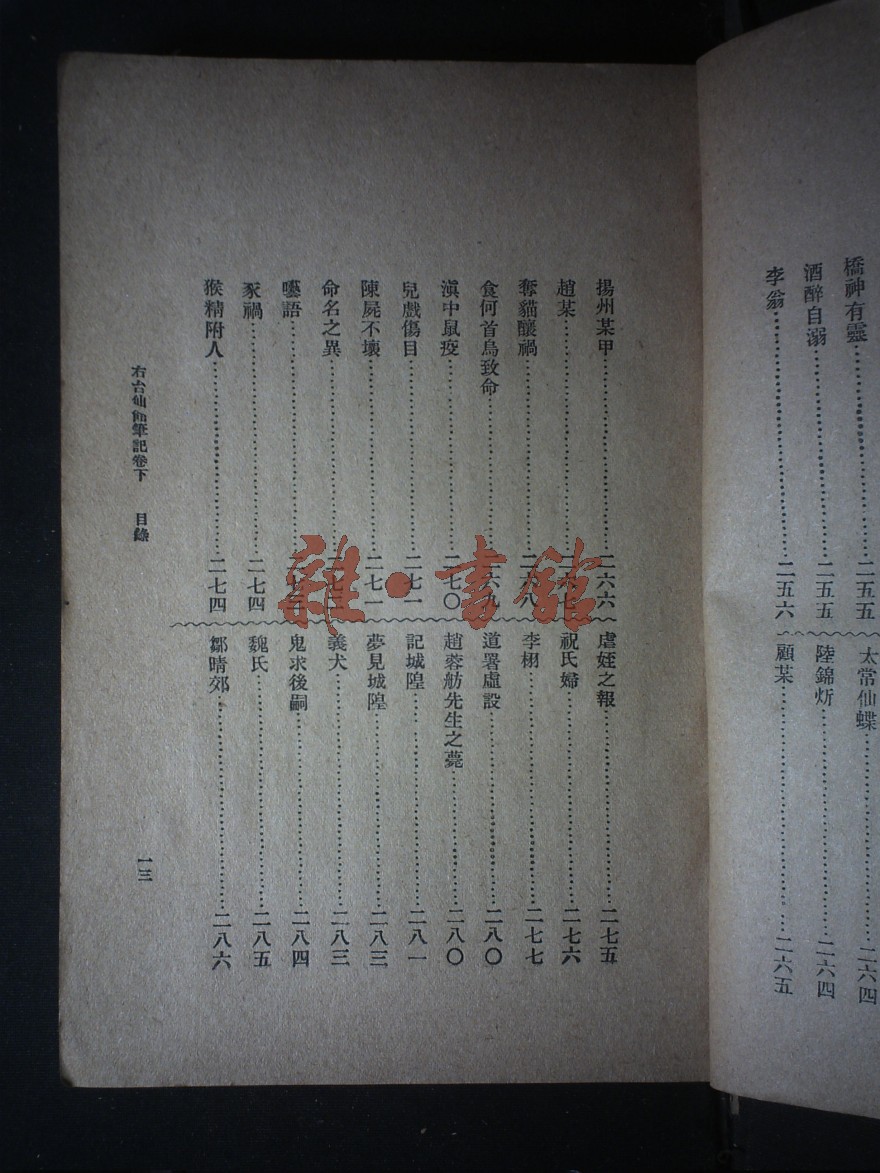 橋神有靈……二五五
酒醉自溺……二五五
李翁……二五六
太常仙蝶……二六四
陸錦炘……二六四
顧某……二六五
揚州某甲……二六六
趙某
奪貓釀禍
食何首烏致命
滇中鼠疫……二七〇
兒戲傷目……二七一
陳屍不壞……二七一
命名之異
囈語
豕禍……二七四
猴精附人……二七四
虐姪之報……二七五
祝氏婦……二七六
李栩……二七七
道署虛設……二八〇
趙蓉舫先生之薨……二八〇
記城隍……二八一
夢見城隍……二八三
義犬……二八三
鬼求後嗣……二八四
魏氏……二八五
鄒晴郊……二八六
右台仙館筆記卷下 目錄
一三
雜·書館